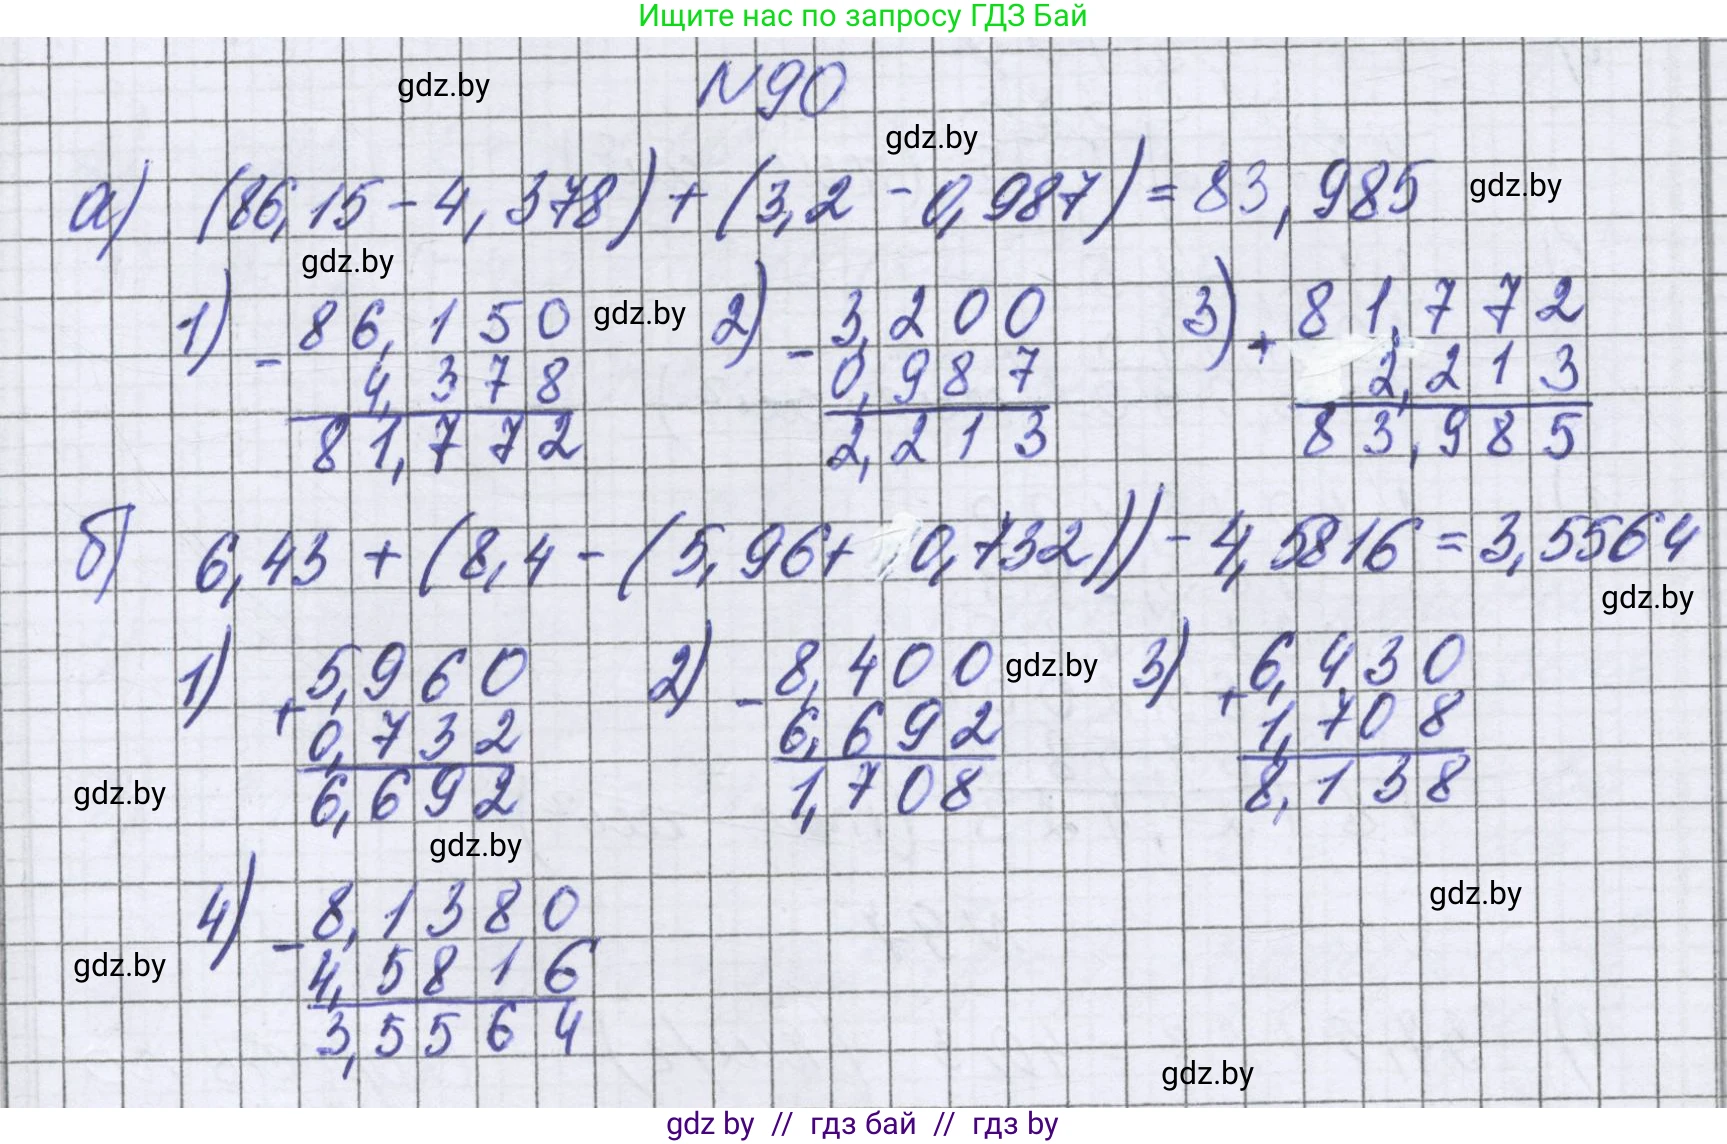 Ищите нас по запросу ГДЗ Бай
gdz.by
N90
gdz.by
а) (86,15 - 4,378) + (3,2 - 0,987) = 83,985
gdz.by
gdz.by
1) - 86,150
4,378
81,772
gdz.by
2) - 3,200
0,987
2,213
3) + 81,772
2,213
83,985
б) 6,43 + (8,4 - (5,96 + 0,732)) - 4,5816 = 3,5564
gdz.by
1) + 5,960
0,732
6,692
2) - 8,400
6,692
1,708
gdz.by
3) + 6,430
1,708
8,138
gdz.by
gdz.by
4) - 8,1380
4,5816
3,5564
gdz.by
gdz.by
gdz.by
gdz by // гдз бай // гдз by